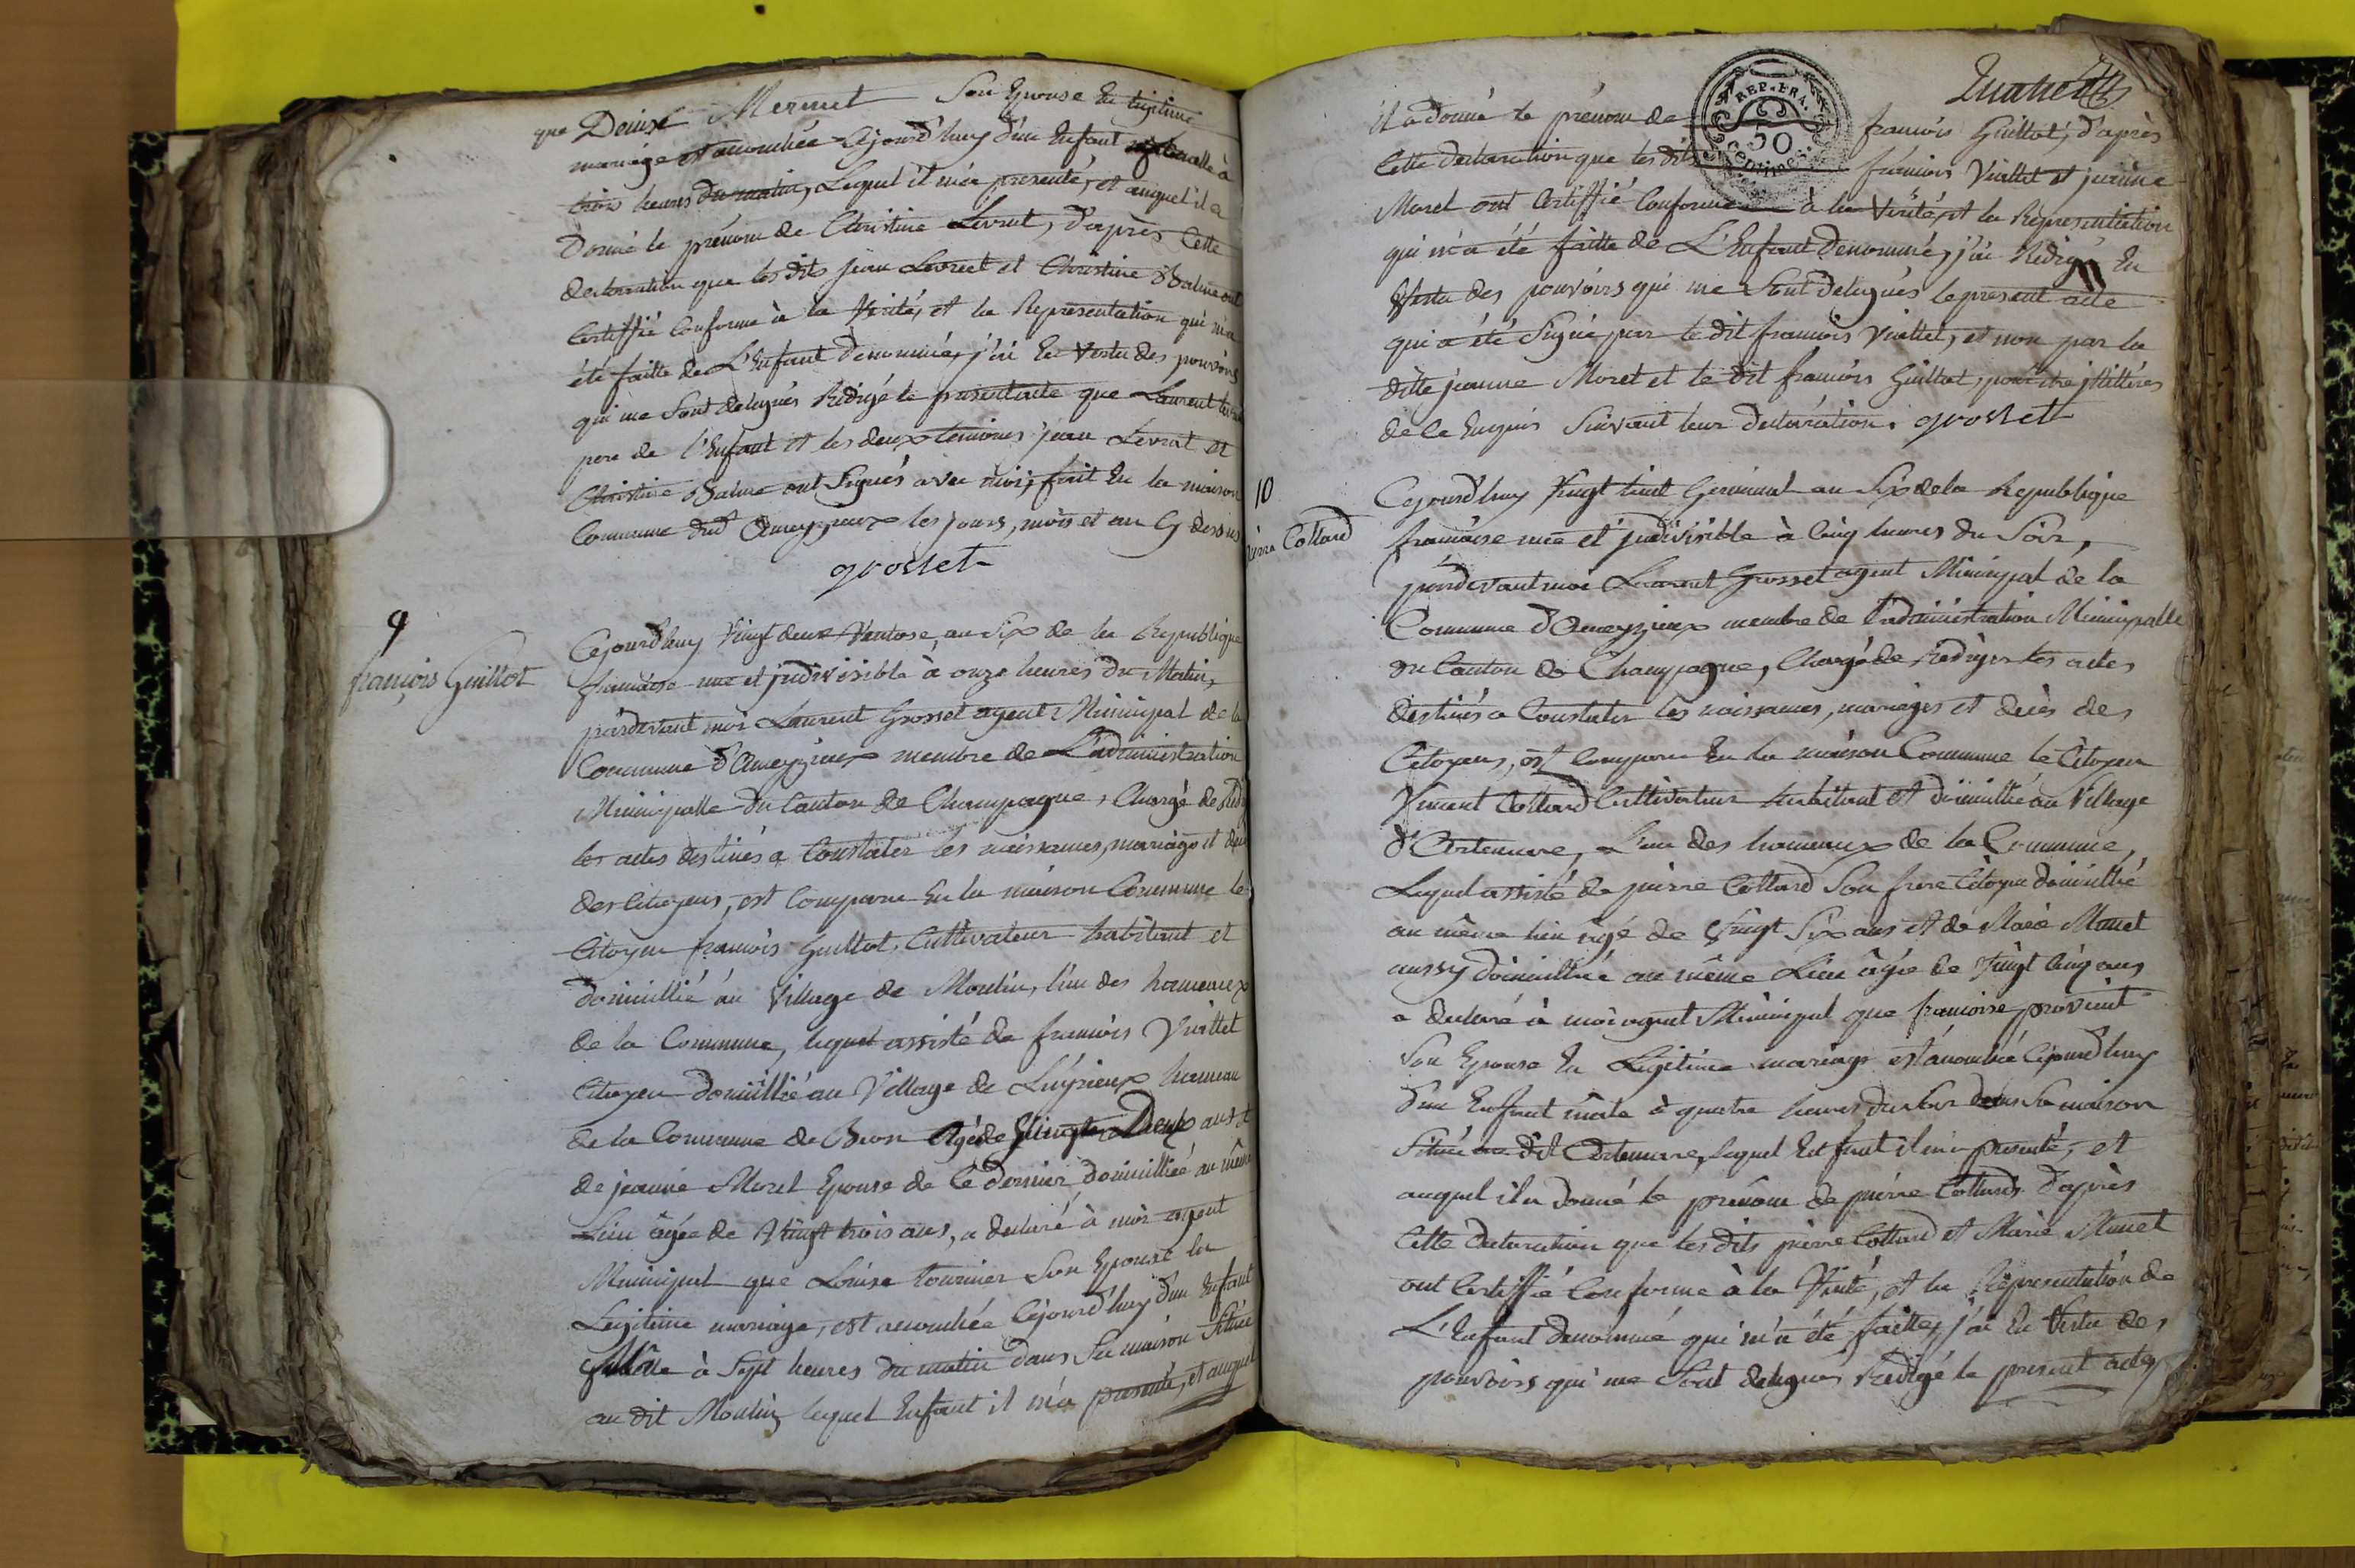 que Denise Mermet Son Epouse En legitime
mariage est accouchée Cejourd'huy d'un Enfant femelle à
trois heures du matin, Lequel il m'a presenté, et auquel il a
Donné le prénom de Christine Levrat, d'après Cette
declaration que les dits jean Levrat et Christine Balme ont
Certiffié Conforme à la Verité, et la Representation qui m'a
été faitte de L'Enfant denommée, j'ai En Vertu des pouvoirs
qui me Sont delegués Redigé le present acte que Laurent
pere de l'Enfant et les deux temoins jean Levrat et
Christine Balme ont Signés avec moi, fait En la maison
Commune dud Ameyzieux les jours, mois et an Cy dessus
grosset
9
françois Guillot
Cejourd'huy Vingt deux Ventose, an Six de la Republique
française une et jndivisible à onze heures du Matin,
pardevant moi Laurent Grosset agent Municipal de la
Commune d'Ameyzieux membre de L'administration
Municipalle du Canton de Champagne, Chargé de
les actes destinés a Constater les naissances, mariages et
des Citoyens, est Comparu En la maison Commune le
Citoyen françois Guillot, Cultivateur habitant et
domicillié au Village de Moulin, l'un des hameaux
de la Commune, lequel assisté de françois Viallet
Citoyen domicillié au Village de Luyrieux hameau
de la Commune de Beon Agé de Vingt Deux ans et
de jeanne Moret Epouse de Ce dernier domicilliée au même
Lieu âgée de Vingt trois ans, a declaré à moi agent
Municipal que Louise tournier Son Epouse En
Legitime mariage, est accouchée Cejourd'huy d'un Enfant
Mâle à Sept heures du matin dans Sa maison Située
au dit Moulin, lequel Enfant il m'a presenté, et auquel
REP. FRA.
50
Centimes
il a donné le prénom de françois Guillot, d'après
Cette declaration que les dits françois Viallet et jeanne
Moret ont Certiffié Conforme à la Verité, et la Representation
qui m'a été faitte de L'Enfant denommé, j'ai Redigé En
Vertu des pouvoirs qui me Sont delegués le present acte
qui a été Signé par le dit françois Viallet, et non par la
ditte jeanne Moret et le dit françois Guillot, pour être jllitéres
de Ce Enquis Suivant leur declaration. grosset
10
Collard
Cejourd'huy Vingt huit Germinal an Six de la Republique
française une et jndivisible à Cinq heures du Soir,
pardevant moi Laurent Grosset agent Municipal de la
Commune d'Ameyzieux membre de l'administration Municipalle
du Canton de Champagne, Chargé de Rediger les actes
destinés a Constater les naissances, mariages et decès des
Citoyens, est Comparu En la maison Commune le Citoyen
Vincent Collard Cultivateur habitant et domicillié au Village
d'Ortemare, L'un des hameaux de la Commune,
Lequel assisté de pierre Collard Son frere Citoyen domicillié
au même lieu agé de Vingt Six ans et de Marie
aussy domicilliée au même Lieu âgée de Vingt Cinq ans
a declaré à moi agent Municipal que françoise
Son Epouse En Legitime mariage est accouchée Cejourd'huy
d'un Enfant mâle à quatre heures du soir dans Sa maison
Située au dit lequel Enfant il m'a presenté, et
auquel il a donné le prénom de pierre Collard d'après
Cette declaration que les dits pierre Collard et Marie
ont Certiffié Conforme à la Verité, et la Representation de
L'Enfant denommé qui m'a été faitte, j'ai En Vertu des
pouvoirs qui me Sont delegués Redigé le present acte